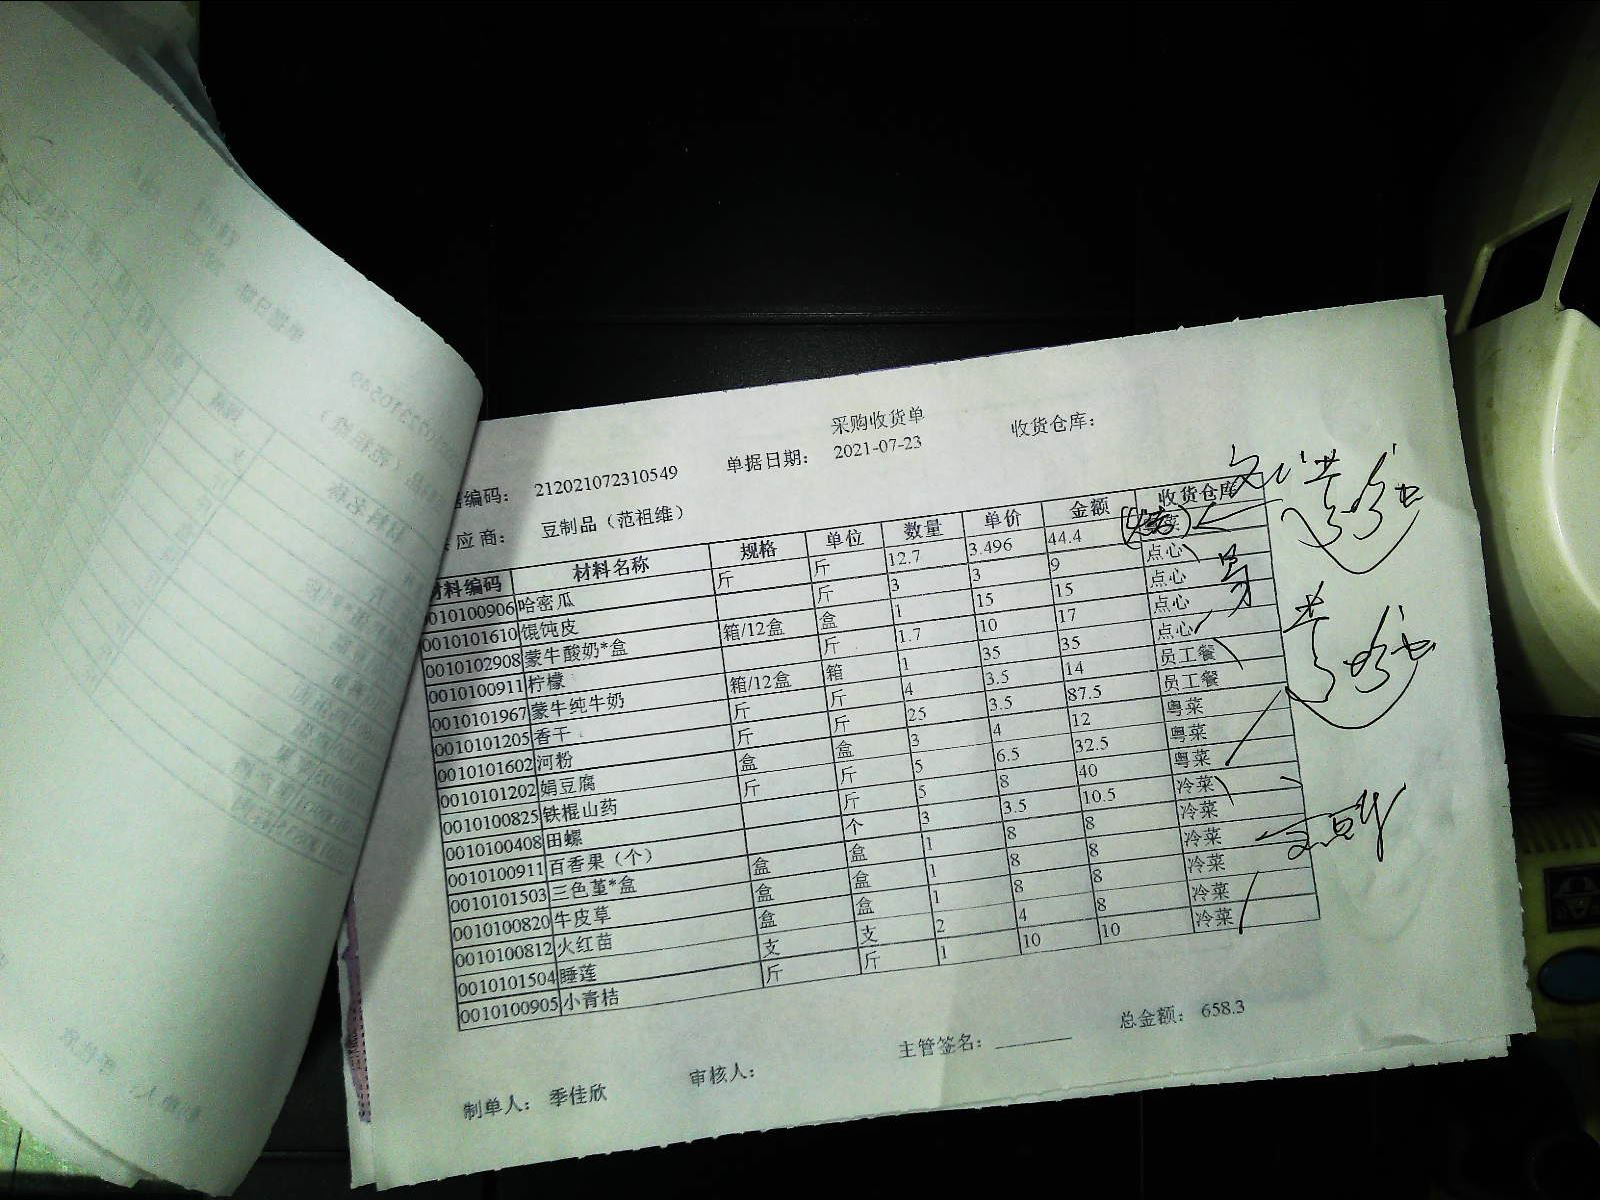 采购收货单
编码： 212021072310549 单据日期： 2021-07-23 收货仓库：
应商： 豆制品（范祖维）
材料编码 材料名称 规格 单位 数量 单价 金额 收货仓库
0010100906 哈密瓜 斤 斤 12.7 3.496 44.4 菜
0010101610 馄饨皮 斤 3 3 9 点心
0010102908 蒙牛酸奶*盒 箱/12盒 盒 1 15 15 点心
0010100911 柠檬 斤 1.7 10 17 点心
0010101967 蒙牛纯牛奶 箱/12盒 箱 1 35 35 点心
0010101205 香干 斤 斤 4 3.5 14 员工餐
0010101602 河粉 斤 斤 25 3.5 87.5 员工餐
0010101202 娟豆腐 盒 盒 3 4 12 粤菜
0010100825 铁棍山药 斤 斤 5 6.5 32.5 粤菜
0010100408 田螺 斤 5 8 40 粤菜
0010100911 百香果（个） 个 3 3.5 10.5 冷菜
0010101503 三色堇*盒 盒 盒 1 8 8 冷菜
0010100820 牛皮草 盒 盒 1 8 8 冷菜
0010100812 火红苗 盒 盒 1 8 8 冷菜
0010101504 睡莲 支 支 2 4 8 冷菜
0010100905 小青桔 斤 斤 1 10 10 冷菜
制单人： 季佳欣 审核人： 主管签名： 总金额： 658.3